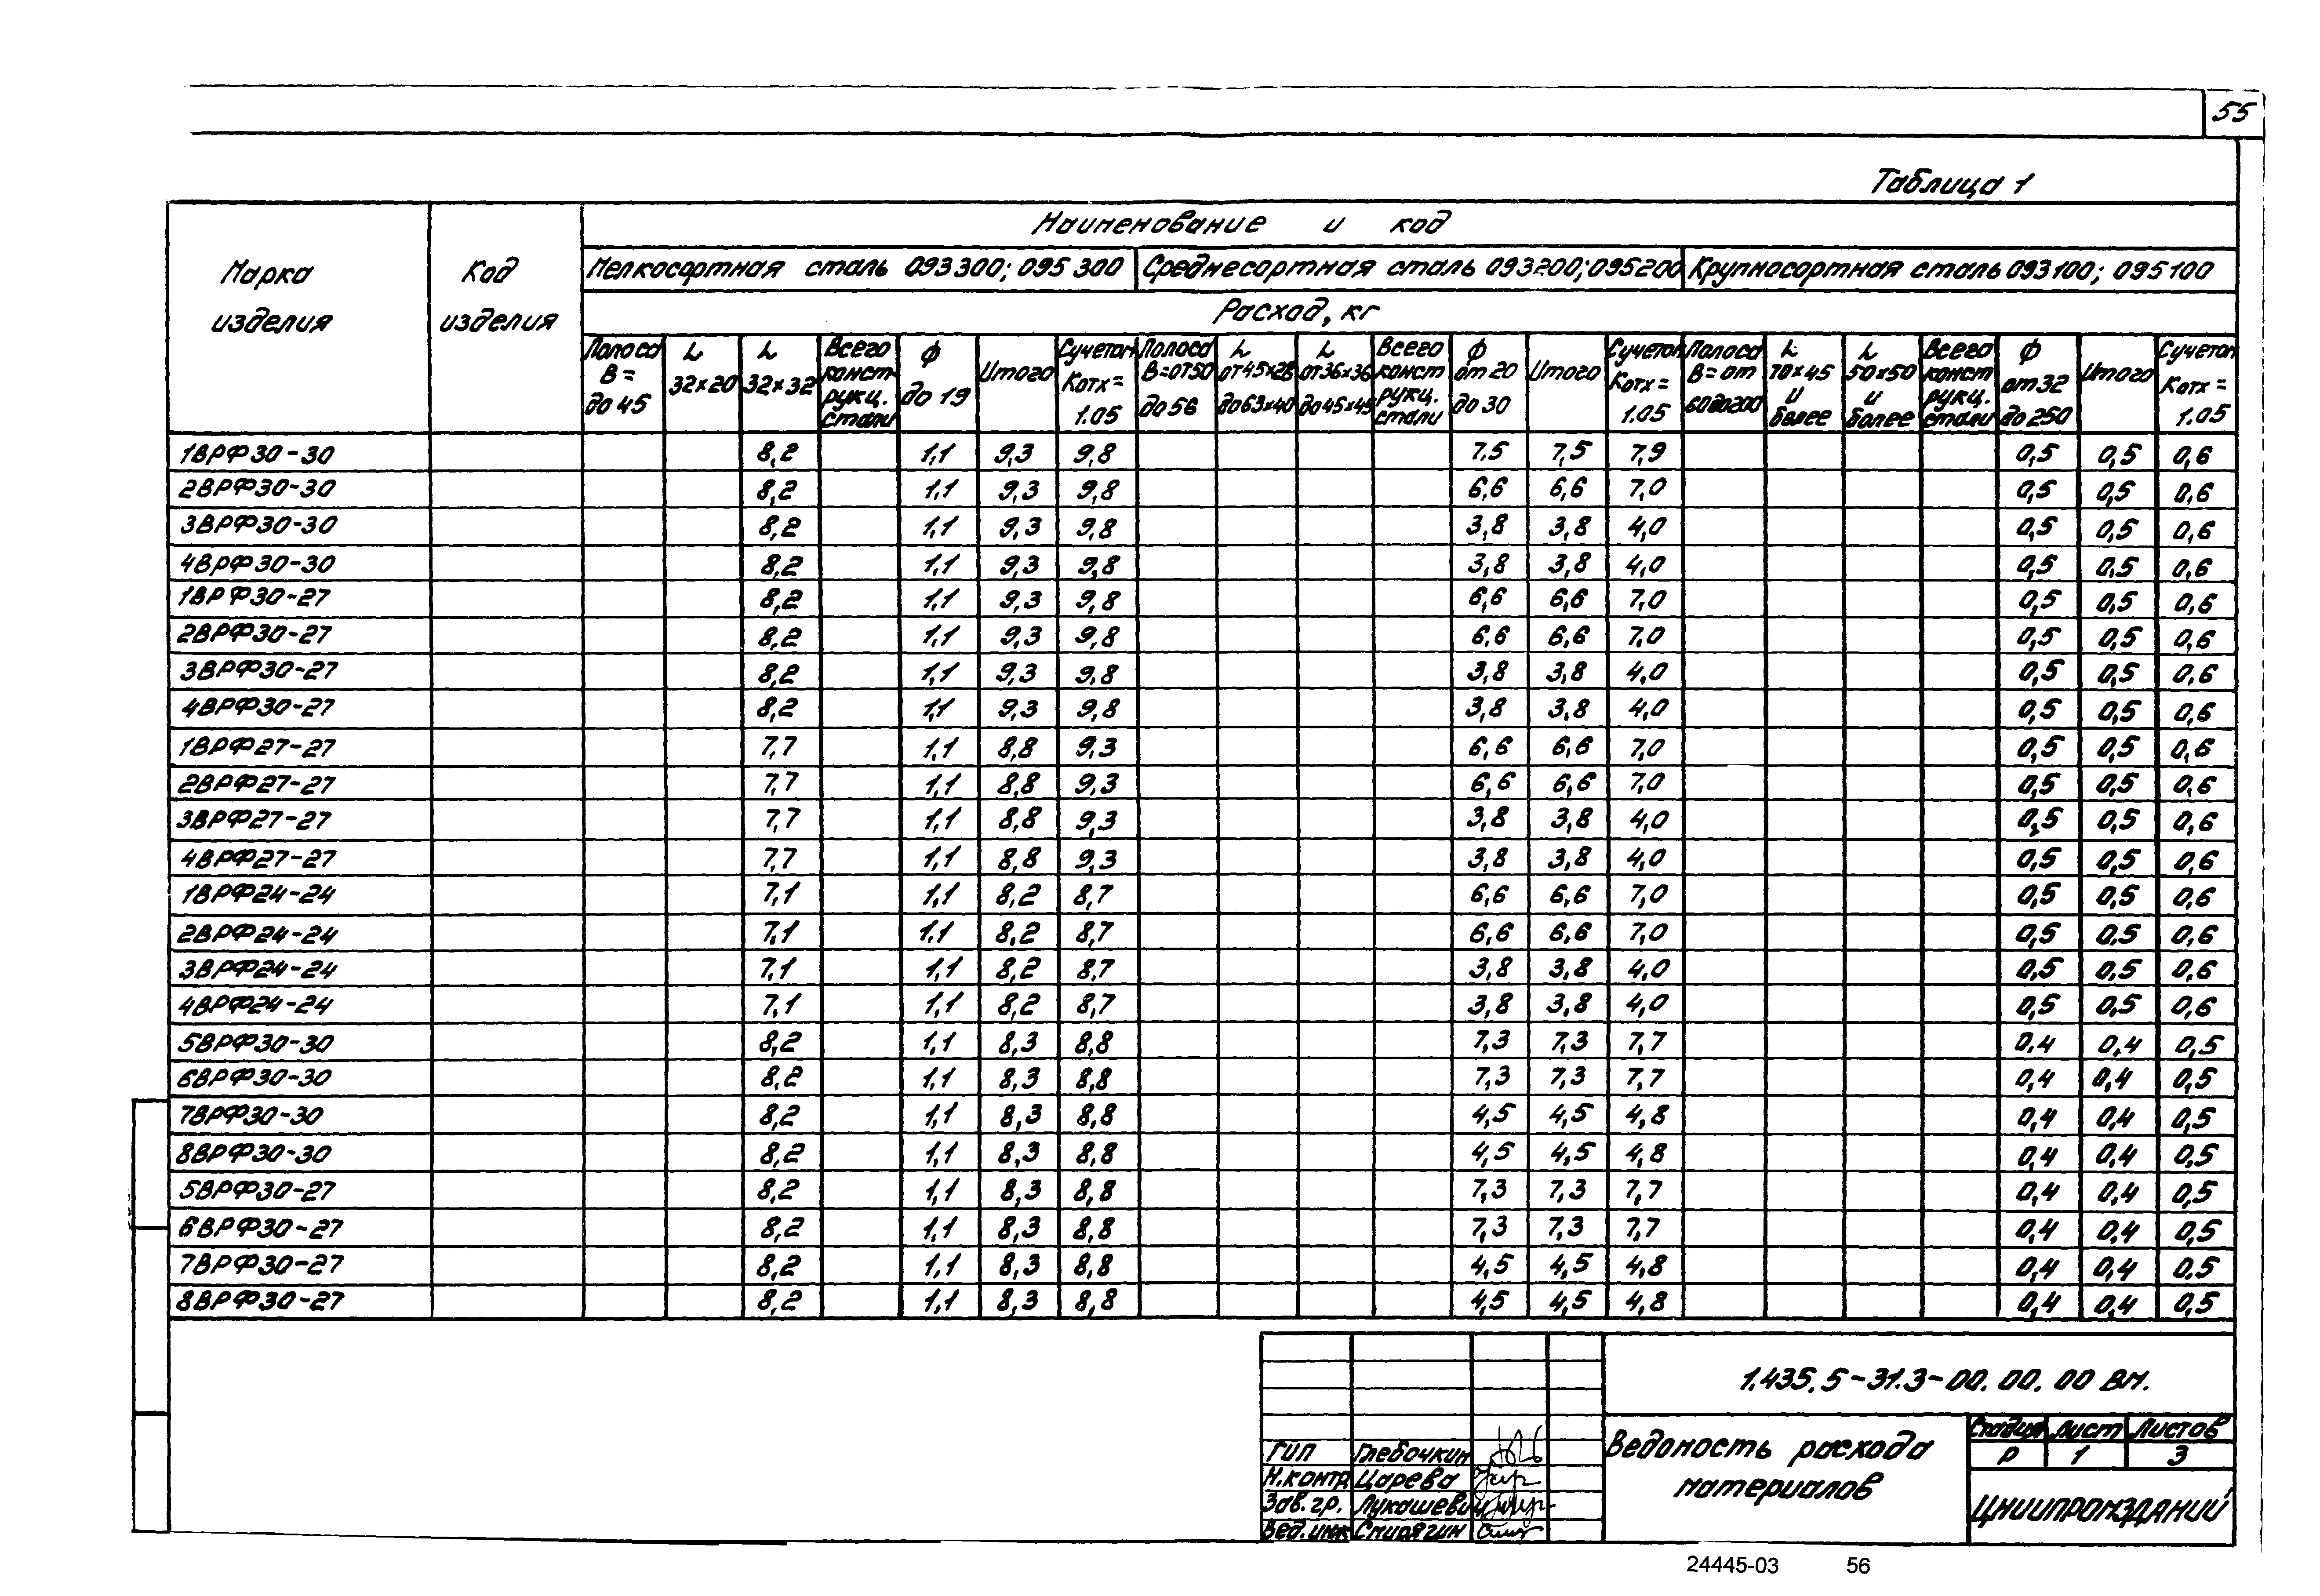 55
Таблица 1
Марка изделия | Код изделия | Наименование и код
Мелкосортная сталь 093300; 095300 | Среднесортная сталь 093200; 095200 | Крупносортная сталь 093100; 095100
Расход, кг
Полоса В= до 45 | L 32×20 | L 32×32 | Всего конст рукц. стали | Ф до 19 | Итого | С учетом Котх= 1.05 | Полоса В=от50 до 56 | L от45×28 до63×40 | L от36×36 до45×45 | Всего конст рукц. стали | Ф от 20 до 30 | Итого | С учетом Котх= 1.05 | Полоса В=от 60до200 | L 70×45 и более | L 50×50 и более | Всего конст рукц. стали | Ф от 32 до 250 | Итого | С учетом Котх= 1.05
1ВРФ30-30 8,2 1,1 9,3 9,8 7.5 7,5 7,9 0,5 0,5 0,6
2ВРФ30-30 8,2 1,1 9,3 9,8 6,6 6,6 7,0 0,5 0,5 0,6
3ВРФ30-30 8,2 1,1 9,3 9,8 3,8 3,8 4,0 0,5 0,5 0,6
4ВРФ30-30 8,2 1,1 9,3 9,8 3,8 3,8 4,0 0,5 0,5 0,6
1ВРФ30-27 8,2 1,1 9,3 9,8 6,6 6,6 7,0 0,5 0,5 0,6
2ВРФ30-27 8,2 1,1 9,3 9,8 6,6 6,6 7,0 0,5 0,5 0,6
3ВРФ30-27 8,2 1,1 9,3 9,8 3,8 3,8 4,0 0,5 0,5 0,6
4ВРФ30-27 8,2 1,1 9,3 9,8 3,8 3,8 4,0 0,5 0,5 0,6
1ВРФ27-27 7,7 1,1 8,8 9,3 6,6 6,6 7,0 0,5 0,5 0,6
2ВРФ27-27 7,7 1,1 8,8 9,3 6,6 6,6 7,0 0,5 0,5 0,6
3ВРФ27-27 7,7 1,1 8,8 9,3 3,8 3,8 4,0 0,5 0,5 0,6
4ВРФ27-27 7,7 1,1 8,8 9,3 3,8 3,8 4,0 0,5 0,5 0,6
1ВРФ24-24 7,1 1,1 8,2 8,7 6,6 6,6 7,0 0,5 0,5 0,6
2ВРФ24-24 7,1 1.1 8,2 8,7 6,6 6,6 7,0 0,5 0,5 0,6
3ВРФ24-24 7,1 1,1 8,2 8,7 3,8 3,8 4,0 0,5 0,5 0,6
4ВРФ24-24 7,1 1,1 8,2 8,7 3,8 3,8 4,0 0,5 0,5 0,6
5ВРФ30-30 8,2 1,1 8,3 8,8 7,3 7,3 7,7 0,4 0,4 0,5
6ВРФ30-30 8,2 1,1 8,3 8,8 7,3 7,3 7,7 0,4 0,4 0,5
7ВРФ30-30 8,2 1,1 8,3 8,8 4,5 4,5 4,8 0,4 0,4 0,5
8ВРФ30-30 8,2 1,1 8,3 8,8 4,5 4,5 4,8 0,4 0,4 0,5
5ВРФ30-27 8,2 1,1 8,3 8,8 7,3 7,3 7,7 0,4 0,4 0,5
6ВРФ30-27 8,2 1,1 8,3 8,8 7,3 7,3 7,7 0,4 0,4 0,5
7ВРФ30-27 8,2 1,1 8,3 8,8 4,5 4,5 4,8 0,4 0,4 0.5
8ВРФ30-27 8,2 1,1 8,3 8,8 4,5 4,5 4,8 0,4 0,4 0,5
1.435.5-31.3-00.00.00 ВМ.
Ведомость расхода
материалов
Стадия Лист Листов
Р 1 3
ЦНИИПРОМЗДАНИЙ
ГИП Глебочкин
Н.контр Царева
Зав.гр. Лукашевич
Вед.инж Смирягин
24445-03 56